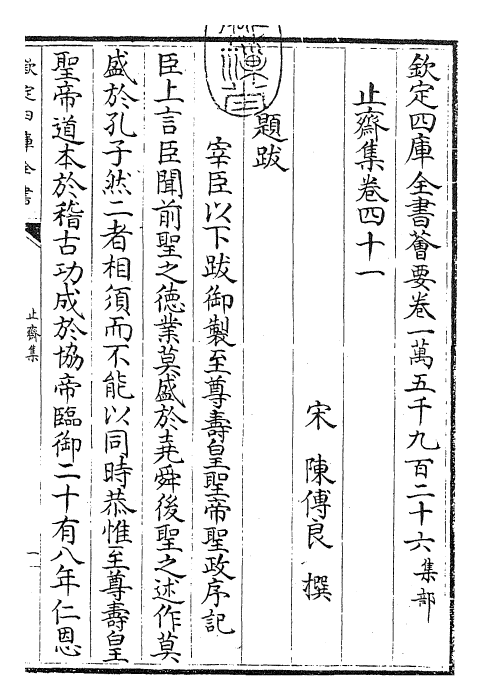 欽定四庫全書薈要卷一萬五千九百二十六集部
止齋集卷四十一
宋 陳傅良 撰
題跋
宰臣以下跋御製至尊壽皇聖帝聖政序記
臣上言臣聞前聖之德業莫盛於堯舜後聖之述作莫
盛於孔子然二者相須而不能以同時恭惟至尊壽皇
聖帝道本於稽古功成於協帝臨御二十有八年仁恩
欽定四庫全書
止齋集
一